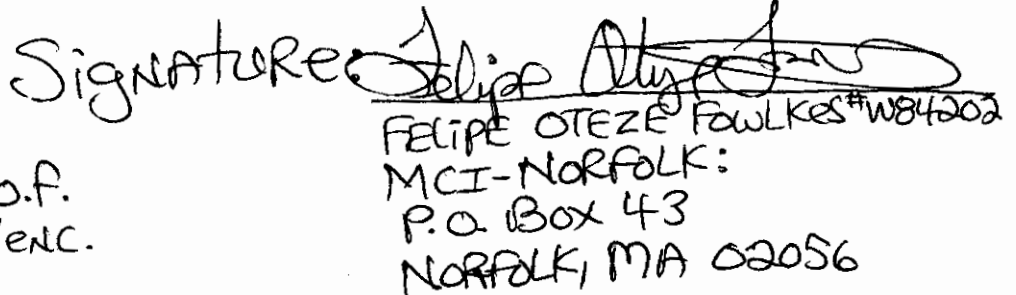 SigNAtuRe: Felipe Oteze
FELiPE OTEZE FOWLKES #W84202
MCI-NORFOLK:
o.f.
P.O. BOX 43
enc.
NORFOLK, MA 02056